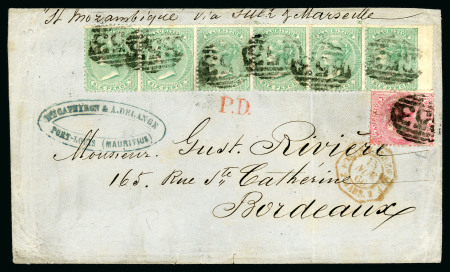 "St Mozambique" via Suez & Marseille
MAURITIUS
SIX PENCE
P.D.
& A. DELANGE
PORT-LOUIS (MAURITIUS)
Monsieur Gust. Rivière
165, Rue Ste Catherine
Bordeaux